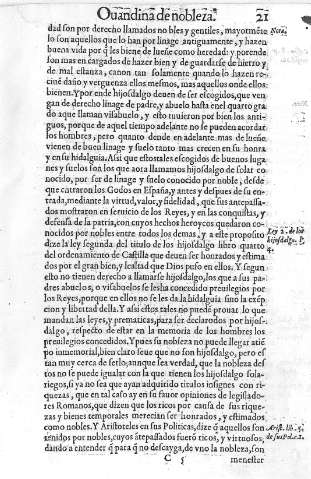 Ouandina de nobleza. 21
dad son por derecho llamados nobles y gentiles, mayormēte
lo son aquellos que lo han por linage antiguamente, y hazen
buena vida por q̃ les biene de lueñe como heredad: y porende
son mas en cargados de hazer bien y de guardarse de hierro y
de mal estança, ca non tan solamente quando lo hazen reci
ciuē daño y verguença ellos mesmos, mas aquellos onde ellos
bienen. Y por ende hijosdalgo deuen de ser escogidos, que ven
gan de derecho linage de padre, y abuelo hasta en el quarto gra
do aque llaman visabuelo, y esto tuuieron por bien los anti-
guos, porque de aquel tiempo adelante no se pueden acordar
los hombres, pero quanto dende en adelante mas de lueñe
vienen de buen linage y suelo tanto mas crecen en su honra
y en su hidalguia. Asi que estos tales escogidos de buenos luga
nes y suelos son los que aora llamamos hijosdalgo de solar co
nocido, por ser de linage y suelo conocido por noble; desde
que entraron los Godos en España, y antes y despues de su en
trada, mediante la virtud, valor, y fidelidad, que sus antepassa
dos mostraron en seruicio de los Reyes, y en las conquistas, y
defensa de la patria, con cuyos hechos heroyces quedaron co-
nocidos por nobles entre todos los demas, y a este proposito
dize la ley segunda del titulo de los hijosdalgo libro quarto
del ordenamiento de Castilla que deuen ser honrados y estima
dos por el gran bien, y lealtad que Dios puso en ellos. Y segun
esto no tienen derecho a llamarse hijosdalgo, los que a sus pa-
dres abuelos, o visabuelos se les ha concedido preuilegios por
los Reyes, porque en ellos no se les da la hidalguia sino la exēp
cion y libertad della. Y asi estos tales no puedē prouar lo que
mandan las leyes, y prematicas, para ser declarados por hijos-
dalgo, respecto de estar en la memoria de los hombres los
preuilegios concedidos. Y pues su nobleza no puede llegar atiē
po inmemorial, bien claro se vee que no son hijosdalgo, pero es
tan muy cerca de serlo: aunque sea verdad, que la nobleza des
tos no se puede igualar con la que tienen los hijosdalgo sola-
riegos, si ya no sea que ayan adquirido titulos insignes con ri-
quezas, que en tal caso ay en su fauor opiniones de legislado-
res Romanos, que dizen que los ricos por causa de sus rique-
zas y bienes temporales merecian ser honrados, y estimados
como nobles. Y Aristoteles en sus Politicas, dize q̃ aquellos son
tenidos por nobles, cuyos ātepassados fuerō ricos, y virtuosos,
dando a entender q̃ para q̃ no descayga, de vno la nobleza, son
C 5 menester
Nota.
Ley 2. de los
hijosdalgo.
4.
Arist. lib. 4.
de sus Pol.